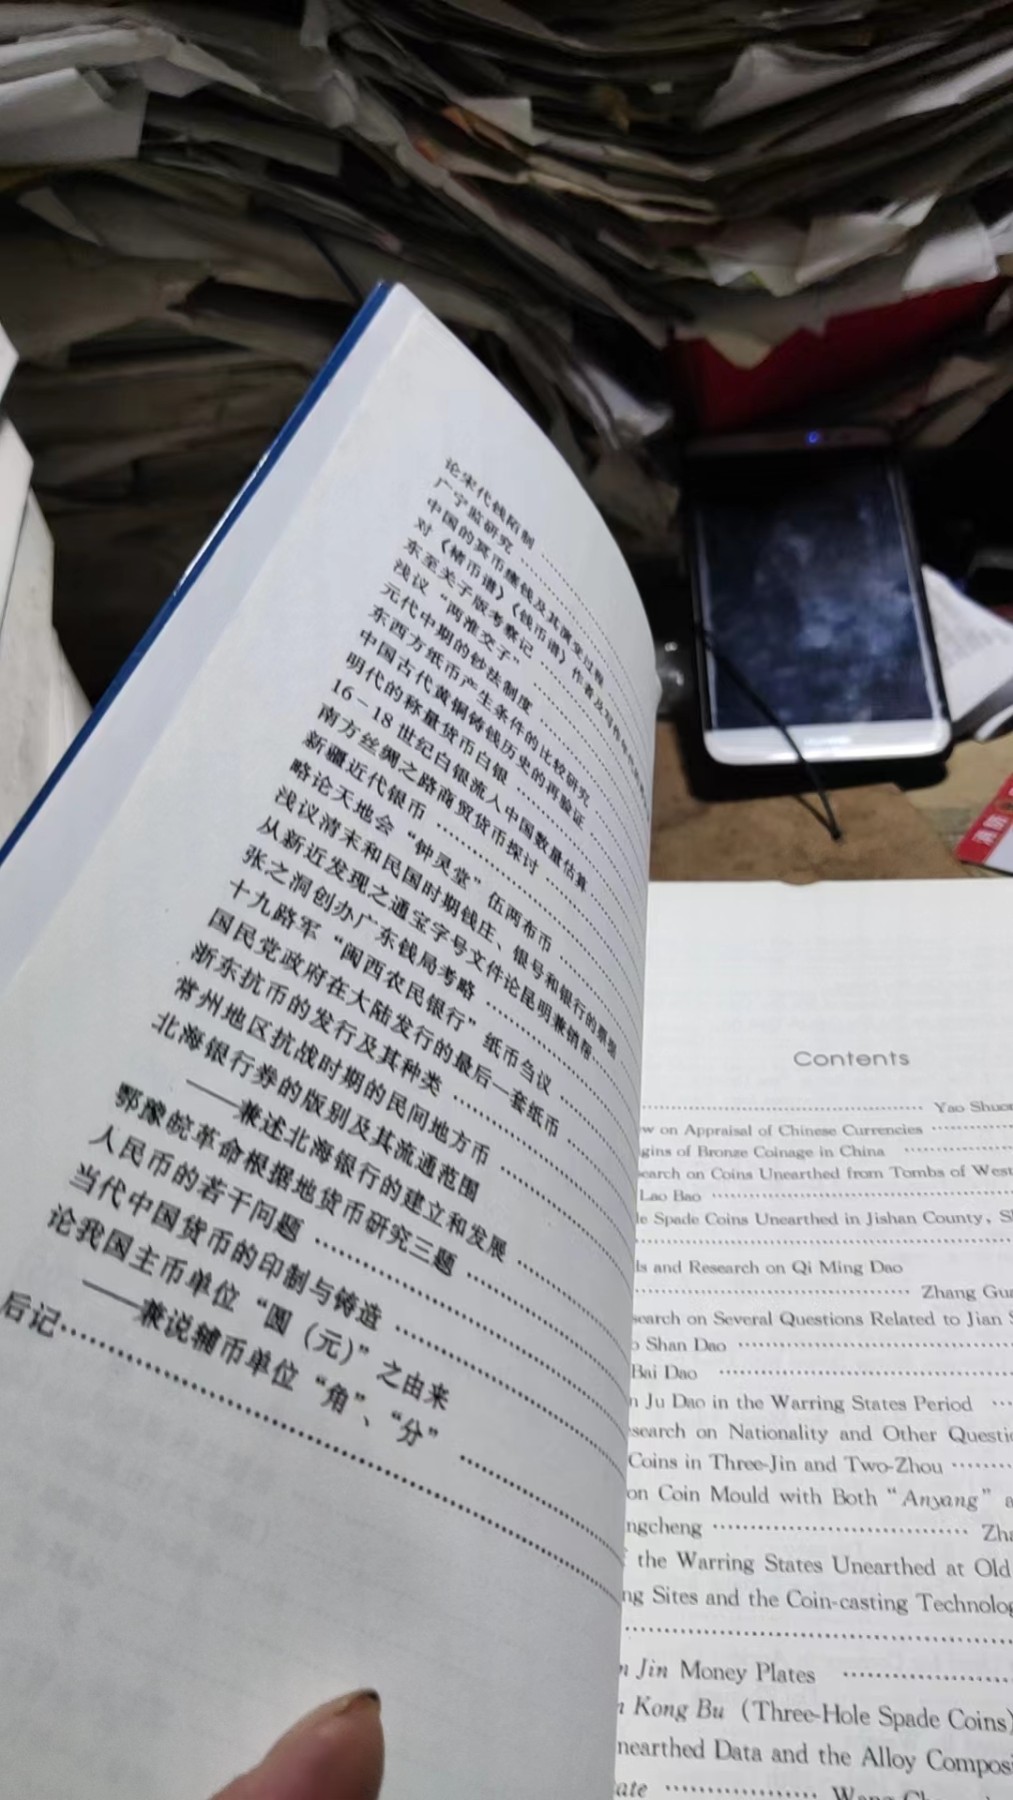 论宋代钱陌制
广宁监研究
中国的冥币瘗钱及其演变过程
对《楮币谱》《钱币谱》作者及写作年代
东至关子版考察记
浅议“两淮交子”
元代中期的钞法制度
东西方纸币产生条件的比较研究
中国古代黄铜铸钱历史的再验证
明代的称量货币白银
16－18世纪白银流入中国数量估算
南方丝绸之路商贸货币探讨
新疆近代银币
略论天地会“钟灵堂”伍两布币
浅议清末和民国时期钱庄、银号和银行的票据
从新近发现之通宝字号文件论昆明兼销帮
张之洞创办广东钱局考略
十九路军“闽西农民银行”纸币刍议
国民党政府在大陆发行的最后一套纸币
浙东抗币的发行及其种类
常州地区抗战时期的民间地方币
北海银行券的版别及其流通范围
——兼述北海银行的建立和发展
鄂豫皖革命根据地货币研究三题
人民币的若干问题
当代中国货币的印制与铸造
论我国主币单位“圆（元）”之由来
——兼说辅币单位“角”、“分”
后记
Contents
Yao Shuo
on Appraisal of Chinese Currencies
gins of Bronze Coinage in China
earch on Coins Unearthed from Tombs of West
Lao Bao
le Spade Coins Unearthed in Jishan County, S
ls and Research on Qi Ming Dao
Zhang Gu
search on Several Questions Related to Jian
Shan Dao
Bai Dao
n Ju Dao in the Warring States Period
search on Nationality and Other Questi
Coins in Three-Jin and Two-Zhou
on Coin Mould with Both “Anyang” a
ngcheng Zh
the Warring States Unearthed at Old
ng Sites and the Coin-casting Technolo
n Jin Money Plates
n Kong Bu (Three-Hole Spade Coins)
nearthed Data and the Alloy Compos
ate